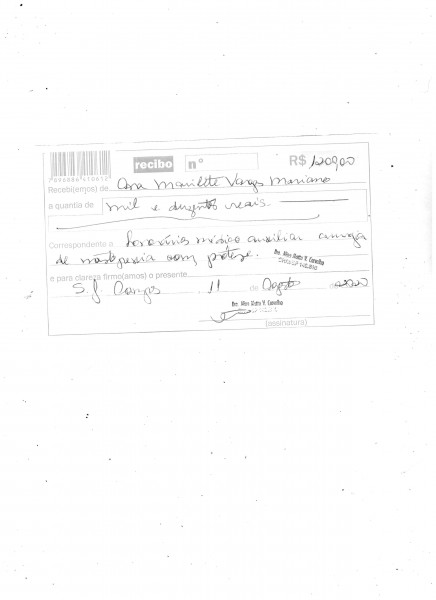 recibo nº R$ 1200,00
Recebi(emos) de Ana Marilete Vargas Mariano
a quantia de mil e duzentos reais
Correspondente a honorários médico auxiliar cirurgia
de mastopexia com prótese.
e para clareza firmo(amos) o presente
S. J. Campos 11 de Agosto de 2020
(assinatura)